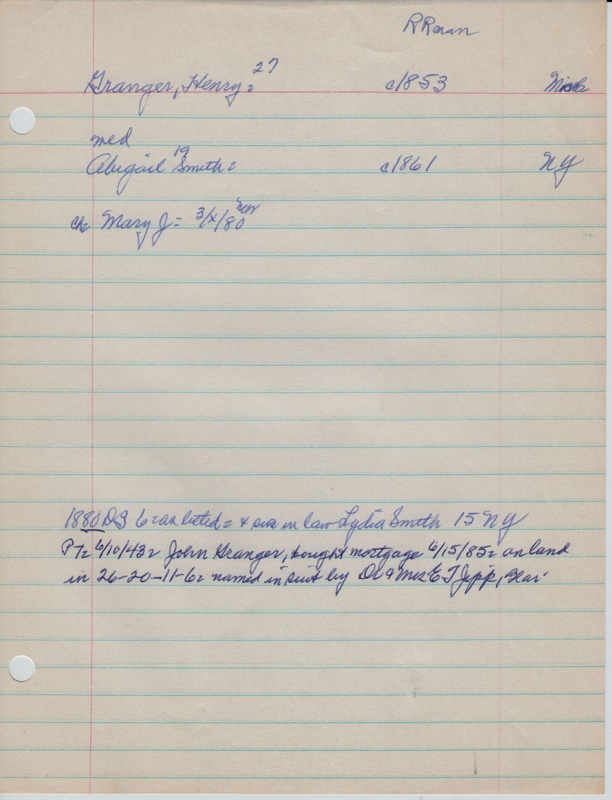 RRman
27
Granger, Henry= c1853 Mich
med
19
Abigail Smith= c1861 NY
ch= Mary J= 3/x/80 
1880 DS 6= as listed= + sis in law Lydia Smith 15 NY
PT= 6/10/43= John Granger, bought mortgage 6/15/85= on land
in 26-20-11-6= named in suit by Dr & Mrs E T Jipp,